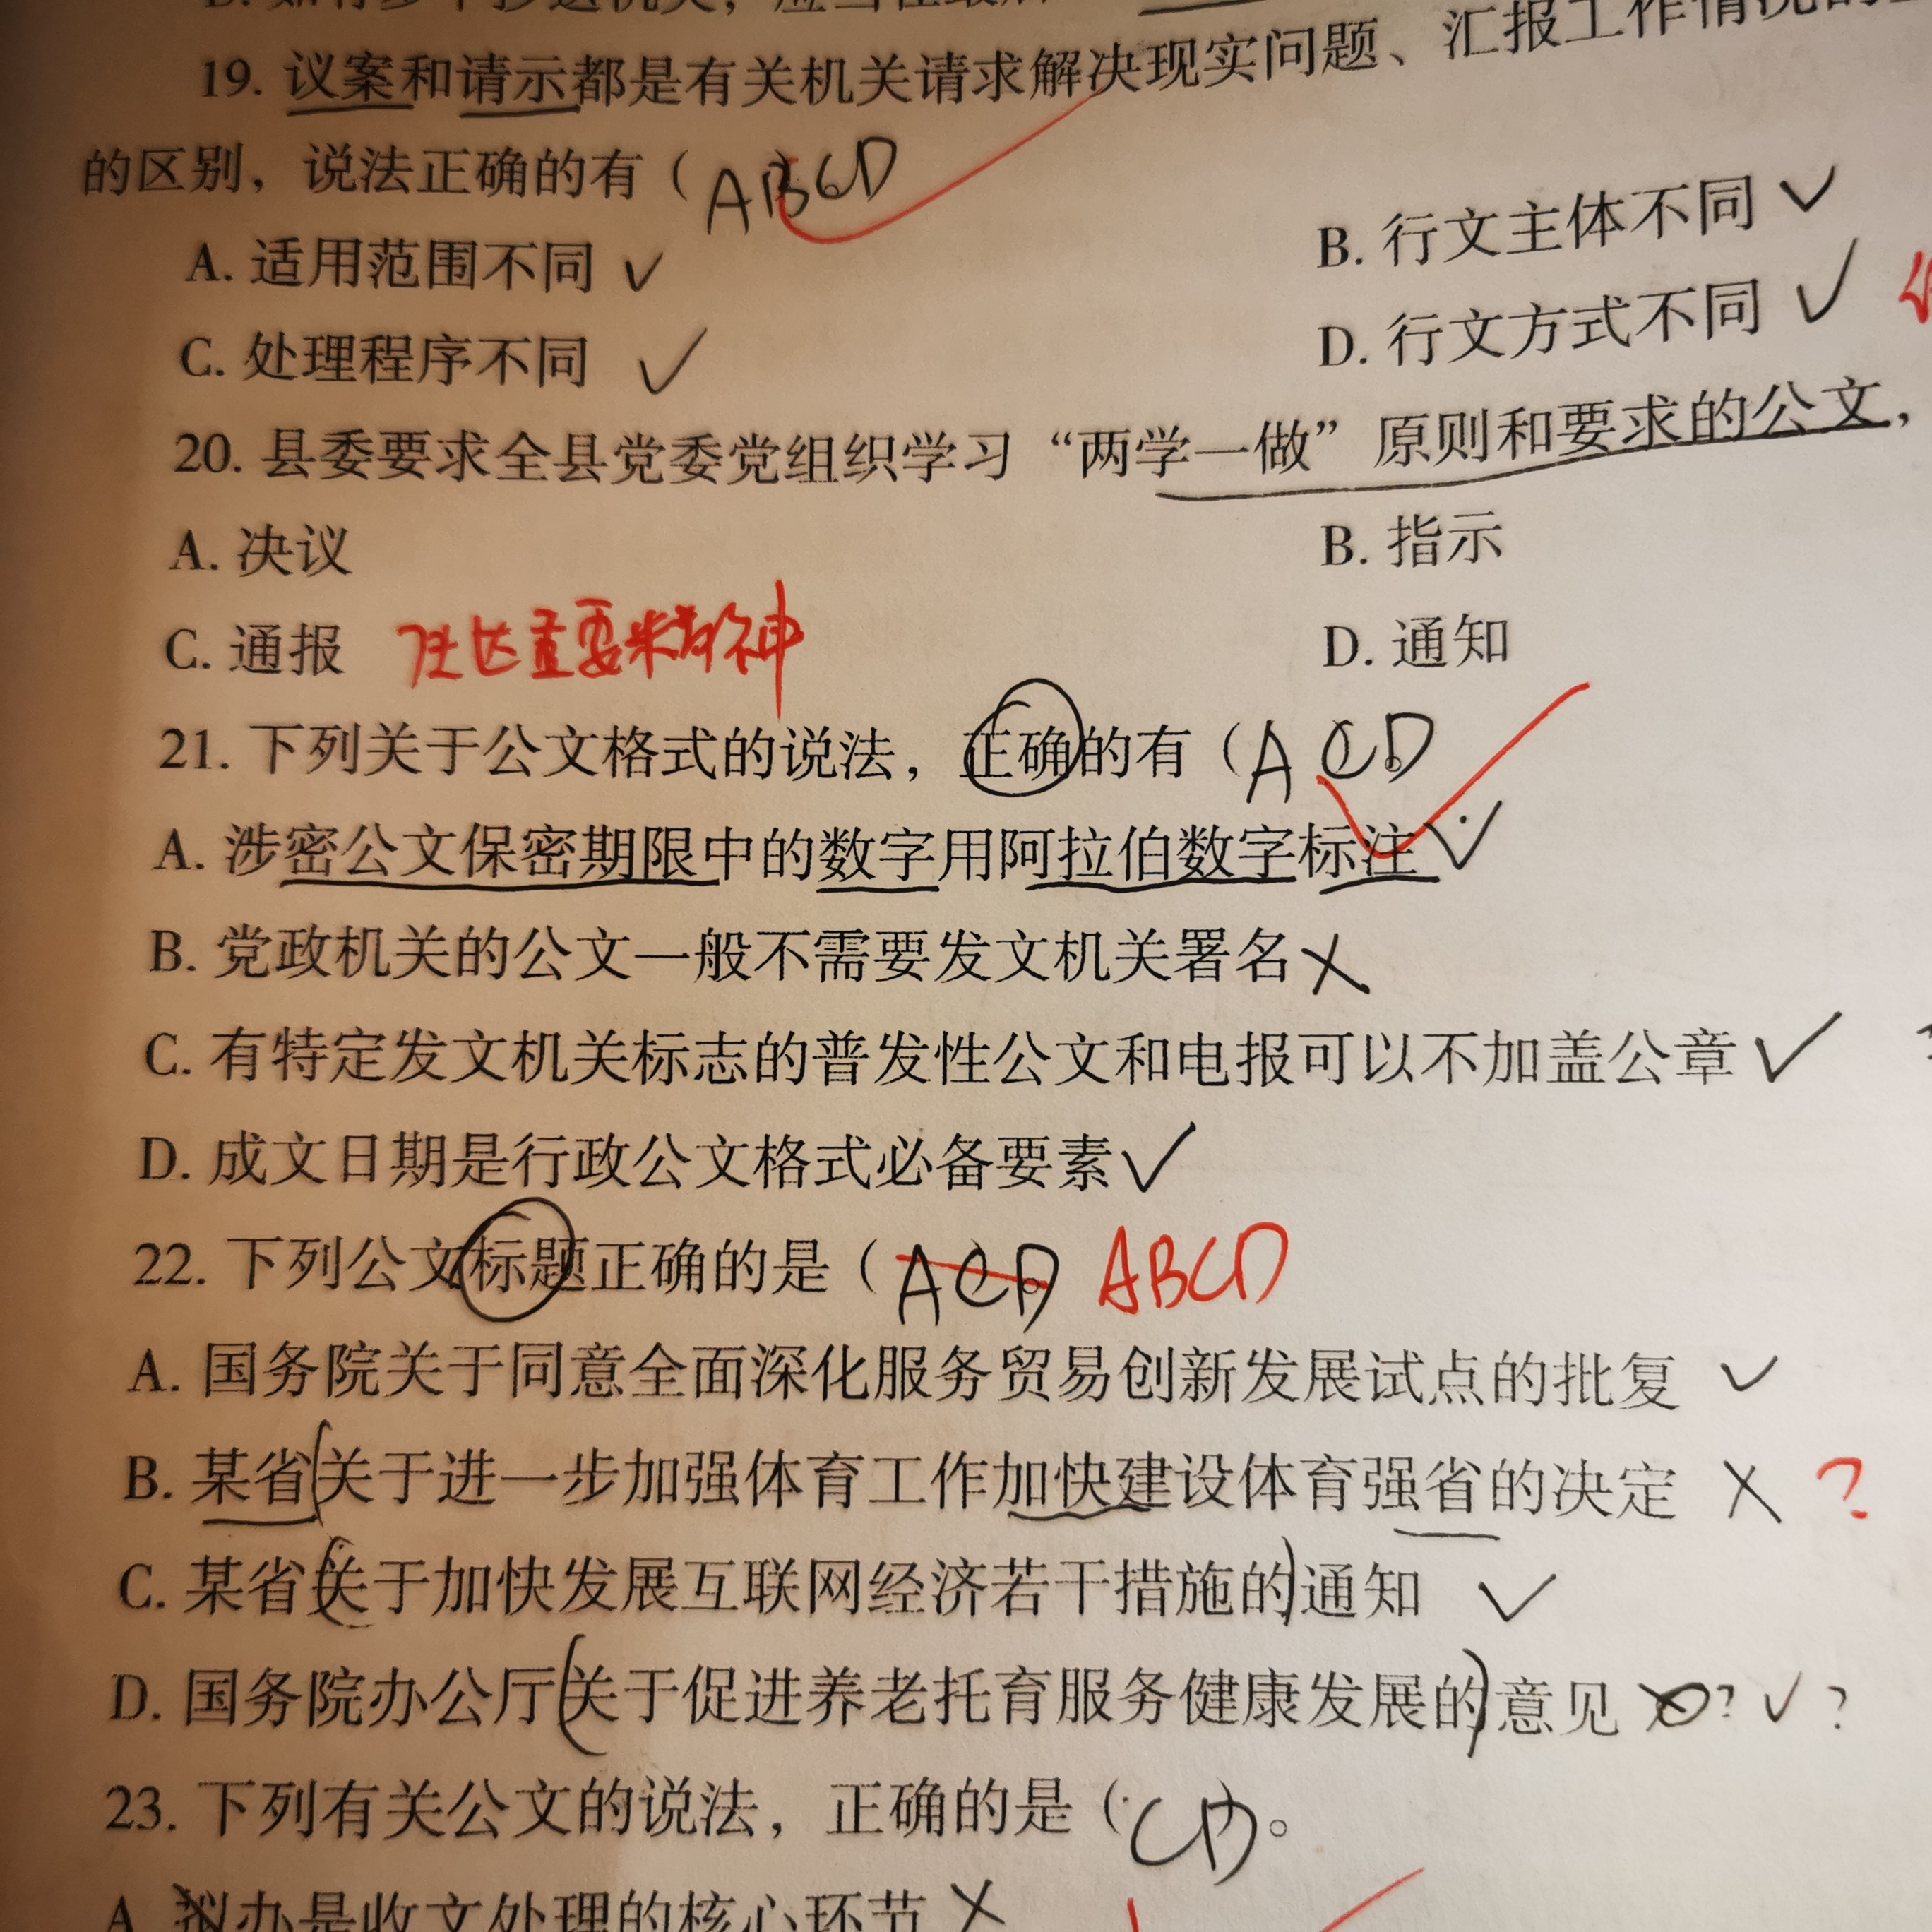 19. 议案和请示都是有关机关请求解决现实问题、汇报工作情况的
的区别，说法正确的有（ABCD
A. 适用范围不同 ✓
B. 行文主体不同 ✓
C. 处理程序不同 ✓
D. 行文方式不同 ✓
20. 县委要求全县党委党组织学习“两学一做”原则和要求的公文，
A. 决议
B. 指示
C. 通报 重要精神
D. 通知
21. 下列关于公文格式的说法，正确的有（ACD
A. 涉密公文保密期限中的数字用阿拉伯数字标注 ✓
B. 党政机关的公文一般不需要发文机关署名 ×
C. 有特定发文机关标志的普发性公文和电报可以不加盖公章 ✓
D. 成文日期是行政公文格式必备要素 ✓
22. 下列公文标题正确的是（ACD ABCD
A. 国务院关于同意全面深化服务贸易创新发展试点的批复 ✓
B. 某省(关于进一步加强体育工作加快建设体育强省的决定 × ?
C. 某省(关于加快发展互联网经济若干措施的)通知 ✓
D. 国务院办公厅(关于促进养老托育服务健康发展的)意见 ? ✓ ?
23. 下列有关公文的说法，正确的是（CD）。
A. 拟办是收文处理的核心环节 ×